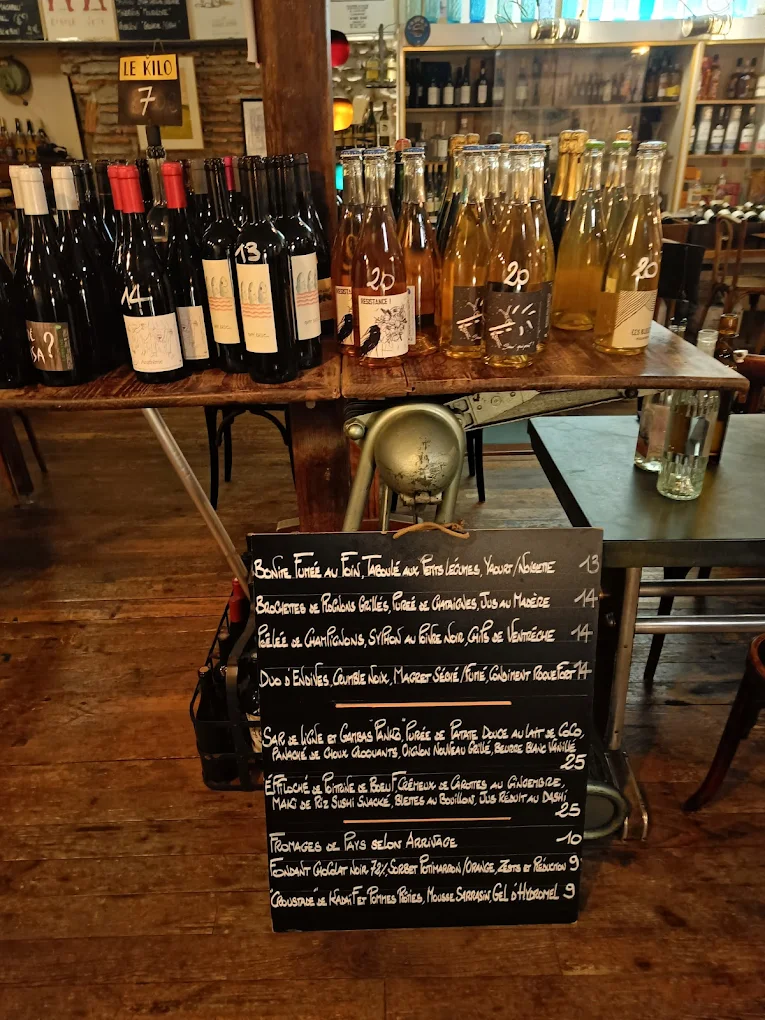 LE KILO
7
14
13
20
RESISTANCE !
20
20
BONITE FUMÉE AU FOIN, TABOULÉ AUX PETITS LÉGUMES, YAOURT/NOISETTE 13
BROCHETTES DE ROGNONS GRILLÉS, PURÉE DE CHATAIGNES, JUS AU MADÈRE 14
POÊLÉE DE CHAMPIGNONS, SYPHON AU POIVRE NOIR, CHIPS DE VENTRÈCHE 14
DUO D'ENDIVES, CRUMBLE NOIX, MAGRET SÉCHÉ/FUMÉ, CONDIMENT ROQUEFORT 14
SAR DE LIGNE ET GAMBAS "PANKO," PURÉE DE PATATE DOUCE AU LAIT DE COCO,
PANACHÉ DE CHOUX CROQUANTS, OIGNON NOUVEAU GRILLÉ, BEURRE BLANC VANILLÉ
25
EFFILOCHÉ DE POITRINE DE BOEUF, CRÉMEUX DE CAROTTES AU GINGEMBRE,
MAKI DE RIZ SUSHI SNACKÉ, BLETTES AU BOUILLON, JUS RÉDUIT AU DASHI,
25
FROMAGES DE PAYS SELON ARRIVAGE 10
FONDANT CHOCOLAT NOIR 72%, SORBET POTIMARRON/ORANGE, ZESTS ET RÉDUCTION 9
"CROUSTADE" DE KADAÏF ET POMMES RÔTIES, MOUSSE SARRASIN, GEL D'HYDROMEL 9